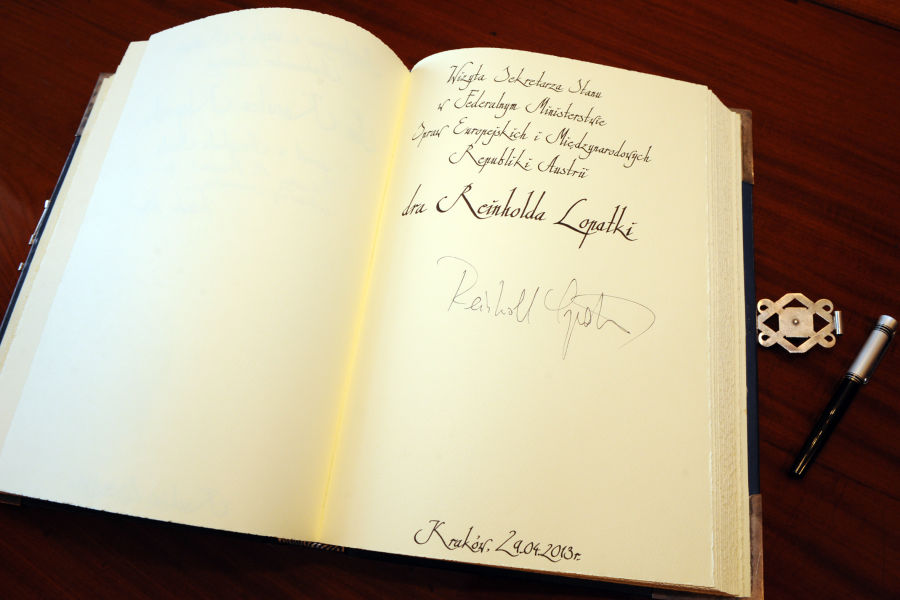 Wizyta Sekretarza Stanu
w Federalnym Ministerstwie
Spraw Europejskich i Międzynarodowych
Republiki Austrii
dra Reinholda Lopatki
Reinhold Lopatka
Kraków, 29.04.2013r.